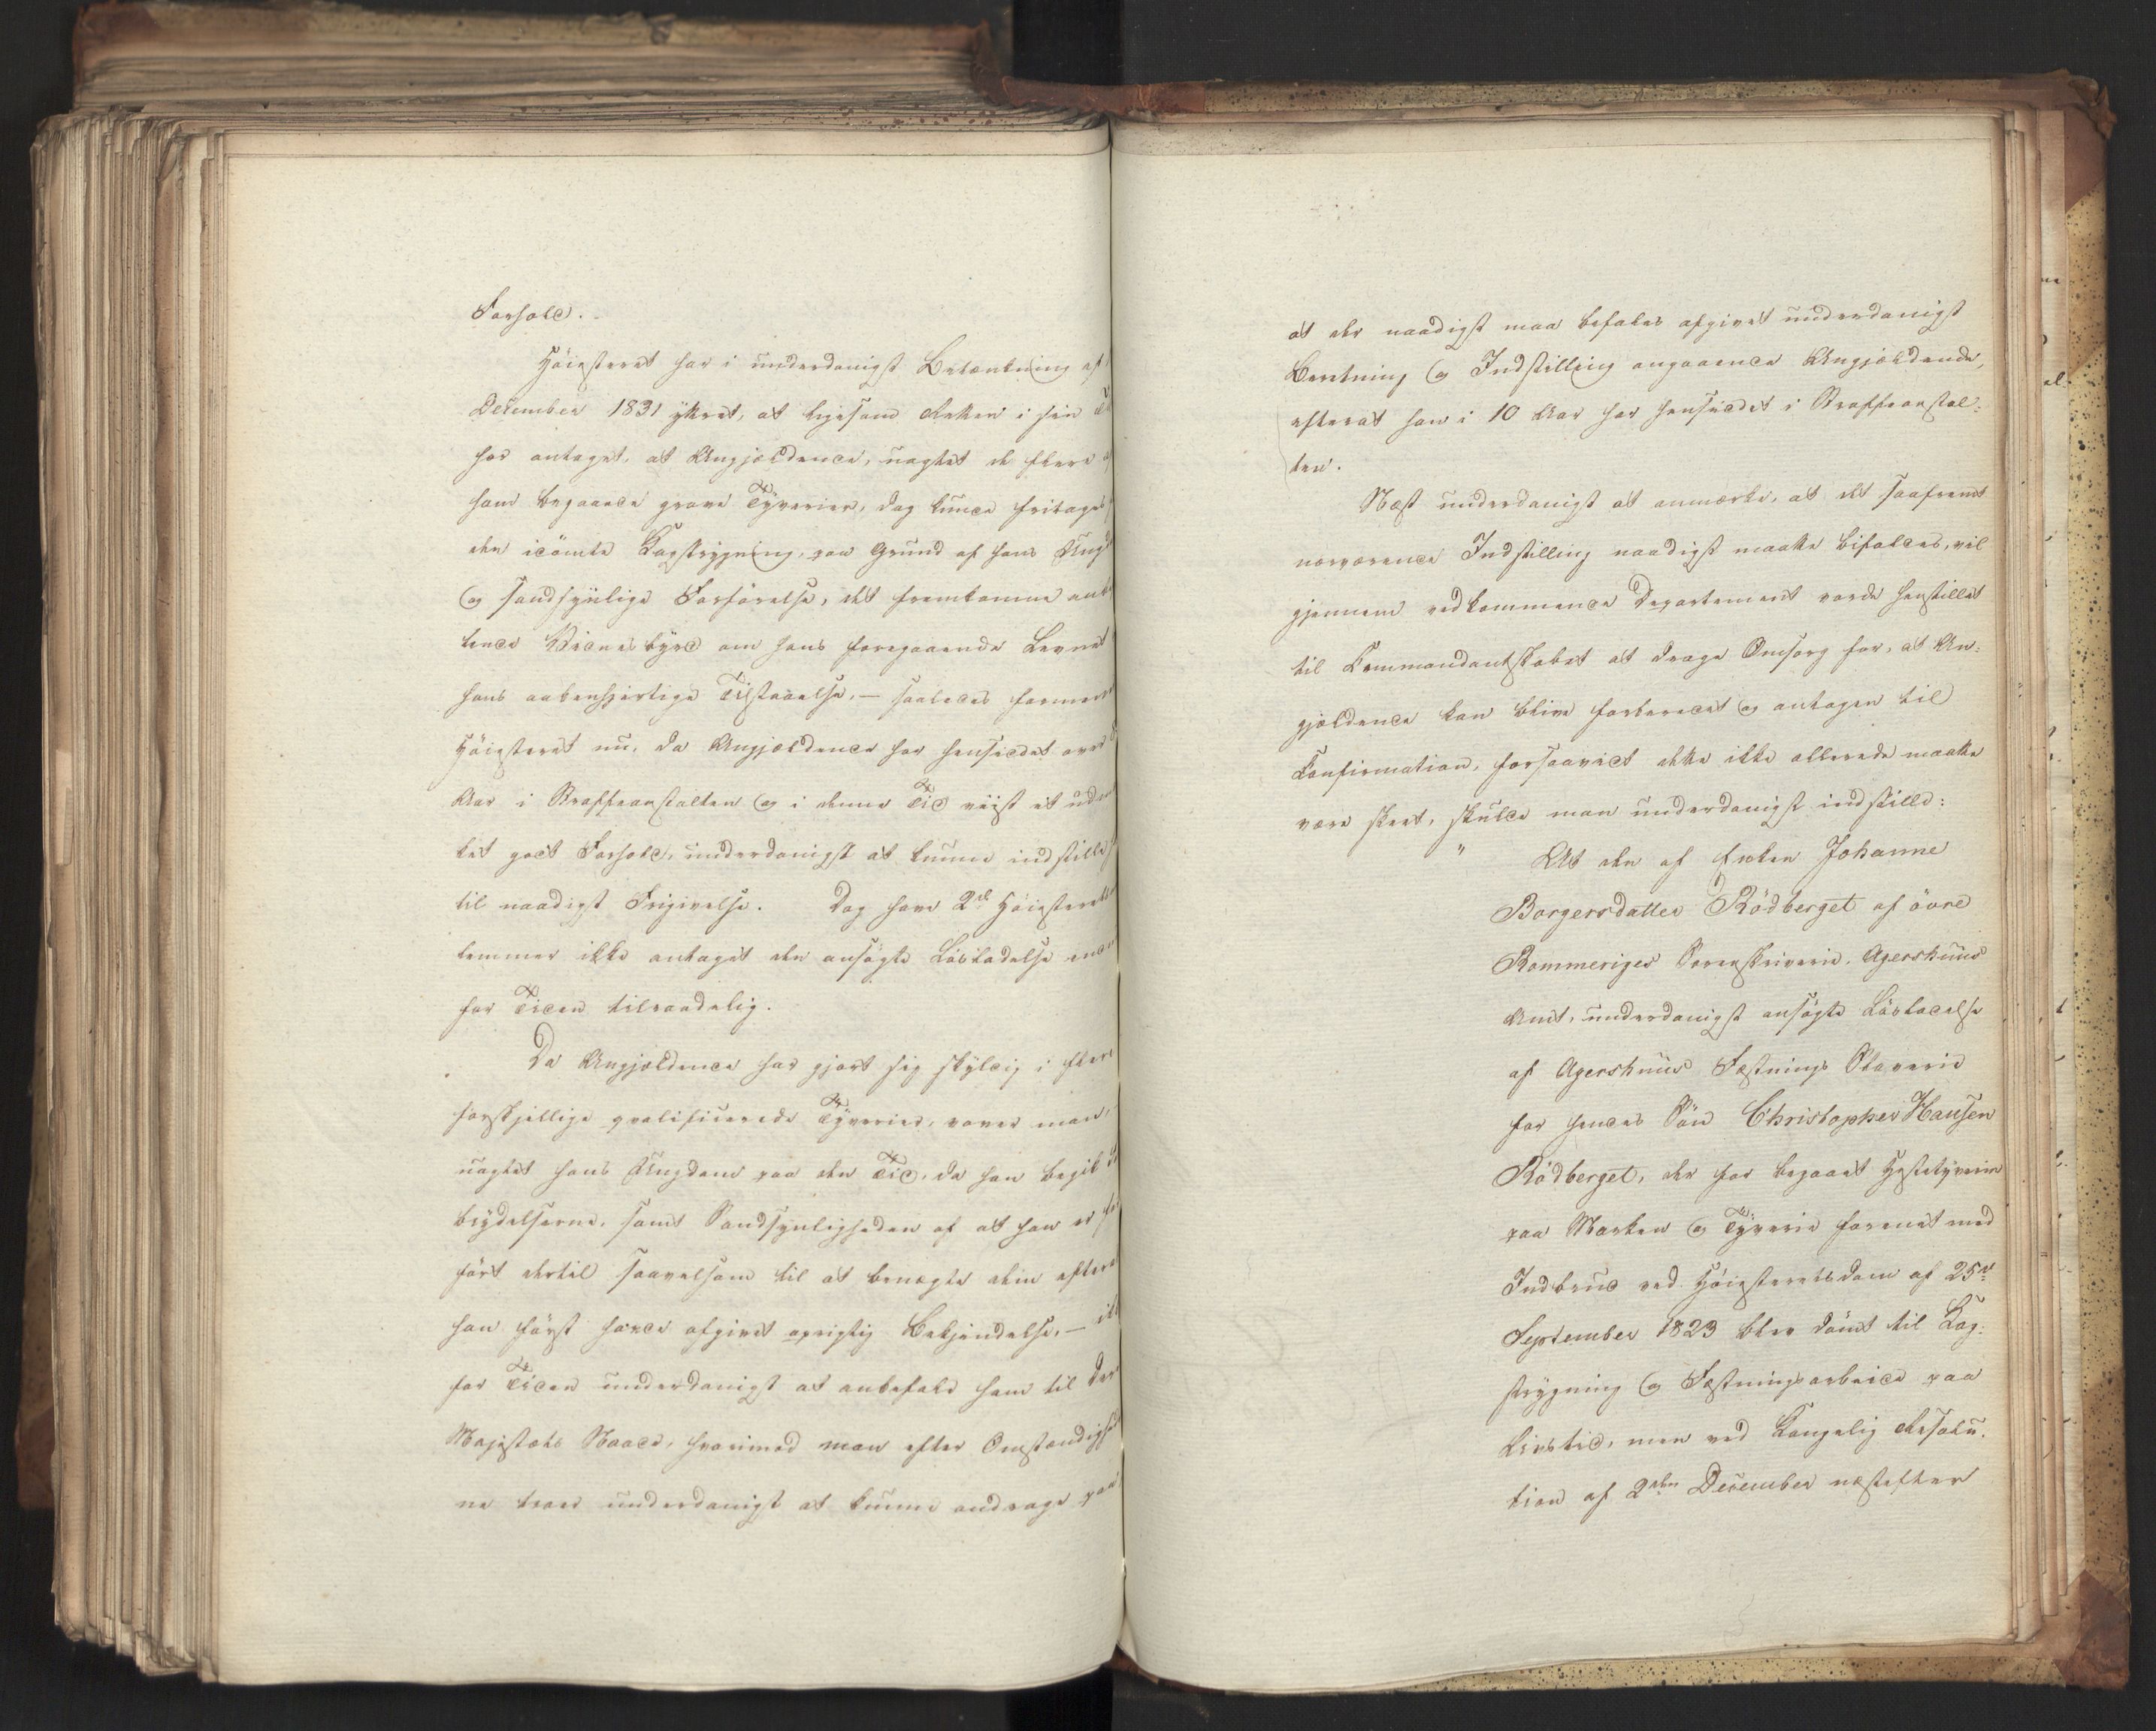 Forhold.
Höiesteret har i underdanigst Betænkning af
December 1831 yttret, at ligesom Retten i sin
har antaget, at Angjældende, uagtet de flere
ham begaaede grove Tyverier, dog kunde fritages
den idömte Kagstrygning, paa Grund af hans
og sandsynlige Forförelse, det fremkomne
Vidnesbyrd om hans foregaaende Levnet
hans aabenhjertige Tilstaaelse, — saaledes formener
Höiesteret nu, da Angjældende har hensiddet over
Aar i Straffeanstalten og i denne Tid viist et
ket godt Forhold, underdanigst at kunne indstille
til naadigst Frigivelse. Dog have 2de Höiesterets
lemmer ikke antaget den ansögte Lösladelse
for Tiden tilraadelig.
Da Angjældende har gjort sig skyldig i flere
forskjellige qvalificerede Tyverier, vover man,
uagtet hans Ungdom paa den Tid, da han begik
brydelserne, samt Sandsynligheden af at han er
fört dertil saavelsom til at benægte dem efterat
han först havde afgivet oprigtig Bekjendelse, —
for Tiden underdanigst at anbefale ham til
Majestæts Naade, hvorimod man efter Omstændighe
ne troer underdanigst at kunne andrage paa
at der naadigst maa befales afgivet underdanigst
Beretning og Indstilling angaaende Angjældende,
efterat han i 10 Aar har hensiddet i Straffeanstal-
ten.
Næst underdanigst at anmærke, at det saafremt
nærværende Indstilling naadigst maatte bifaldes, vil
gjennem vedkommende Departement vorde henstillet
til Commandantskabet at drage Omsorg for, at An-
gjældende kan blive forberedet og antagen til
Confirmation, forsaavidt dette ikke allerede maatte
være skeet, skulde man underdanigst indstille:
" At den af Enken Johanne
Borgersdatter Rödberget af övre
Rommeriges Sorenskriverie, Agershuus
Amt, underdanigst ansögte Lösladelse
af Agershuus Fæstnings Slaverie
for hendes Sön Christopher Hansen
Rödberget, der for begaaet Hestetyverie
paa Marken og Tyverie forenet med
Indbrud ved Höiesteretsdom af 25de
September 1823 blev dömt til Kag-
strygning og Fæstningsarbeide paa
Livstid, men ved Kongelig Resolu-
tion af 2den December næstefter